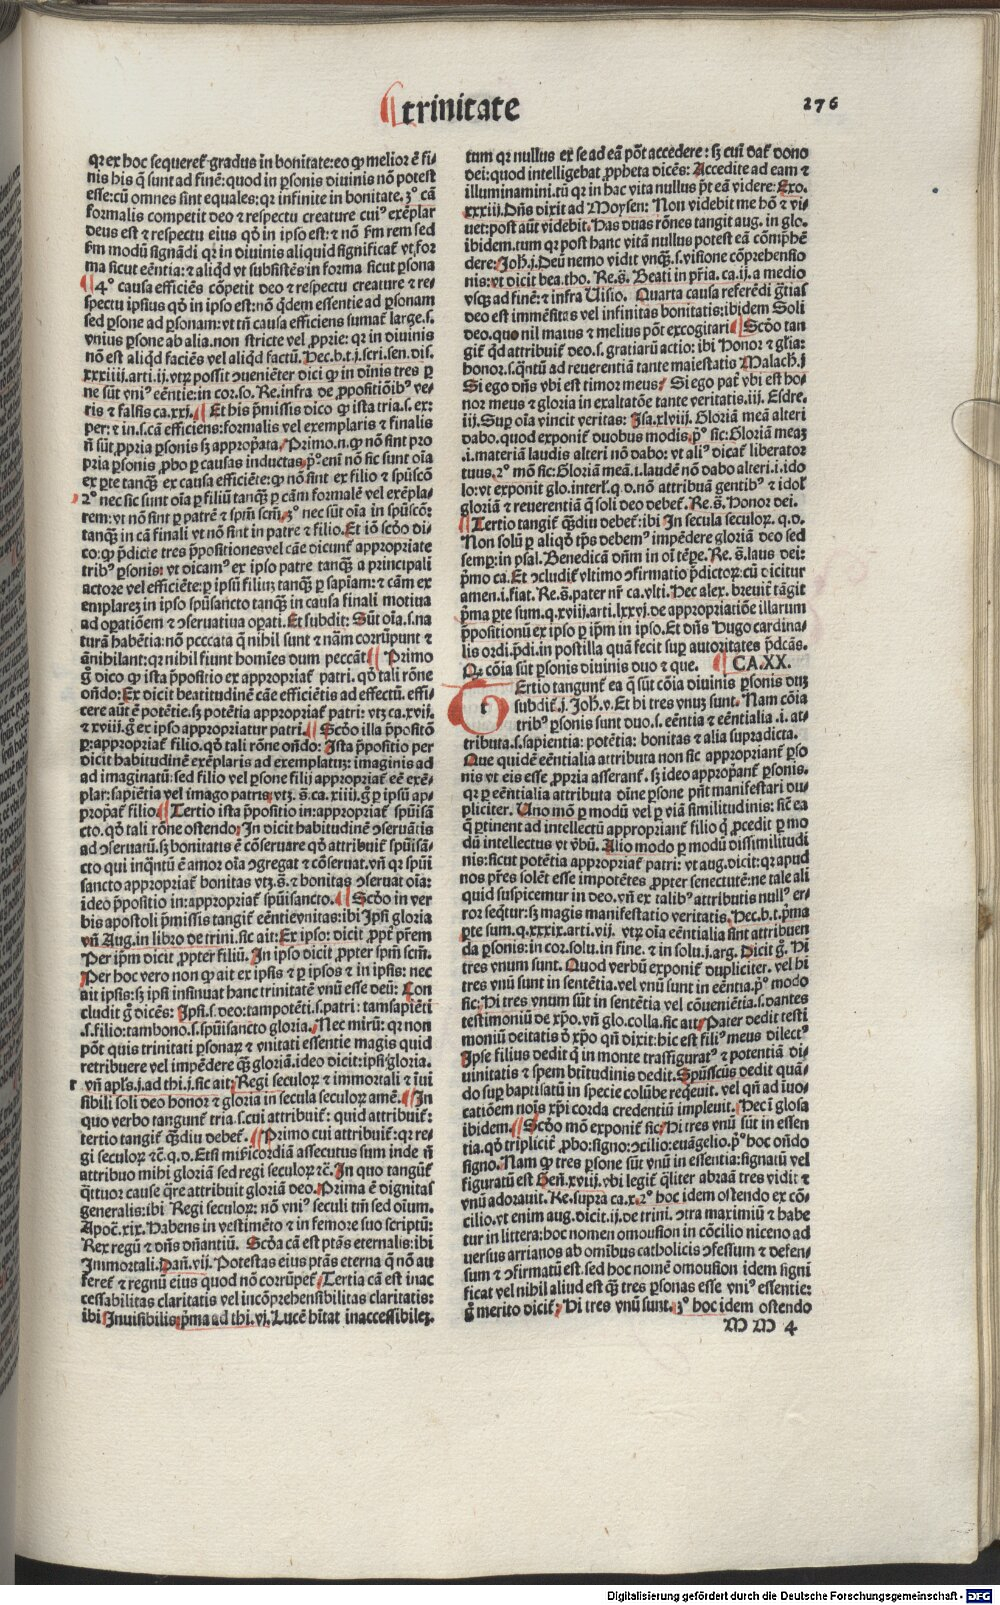 ¶trinitate
276
qr ex hoc sequeret̃ gradus in bonitate: eo ꝙ melior ẽ fi-
nis his q̃ sunt ad finẽ: quod in ꝑsonis diuinis nõ potest
esse: cũ omnes sint equales: qr infinite in bonitate. 3º cã
formalis competit deo ⁊ respectu creature cuiꝰ exẽplar
deus est ⁊ respectu eius qđ in ipso est: ⁊ nõ ẜm rem sed
ẜm modũ signãdi qr in diuinis aliquid significat̃ vt for
ma sicut eẽntia: ⁊ aliqd̃ vt subsistẽs in forma sicut ꝑsona
¶ 4º causa efficiẽs cõpetit deo ⁊ respectu creature ⁊ re-
spectu ipsius qđ in ipso est: nõ q̃dem essentie ad ꝑsonam
sed ꝑsone ad ꝑsonam: vt tñ causa efficiens sumat̃ large .s.
vnius ꝑsone ab alia. non stricte vel ꝓprie: qr in diuinis
nõ est aliqd̃ faciẽs vel aliqd̃ factũ. Hec .b. t. j. scri. sen. dis.
xxxiiij. arti. ij. vtꝝ possit ↄueniẽter dici ꝙ in diuinis tres ꝑ
ne sũt vniꝰ eẽntie: in cor. so. Re. infra de ꝓpositiõibꝰ ve-
ris ⁊ falsis ca. xxj. ¶ Et his p̃missis dico ꝙ ista tria .s. ex:
per: ⁊ in .s. cã efficiens: formalis vel exemplaris ⁊ finalis
ñ sũt ꝓpria ꝑsonis sꝫ appropa̾ta. Primo .n. ꝙ nõ sint pro
pria ꝑsonis ꝓbo ꝑ causas inductas. pº eni nõ sic sunt oĩa
ex ꝑte tanqꝫ ex causa efficiẽte: ꝙ nõ sint ex filio ⁊ spũscõ
2º nec sic sunt oĩa ꝑ filiũ tanqꝫ ꝑ cãm formalẽ vel exẽpla-
rem: vt nõ sint ꝑ patrẽ ⁊ spm̃ scm̃. 3º nec sũt oĩa in spũscõ:
tanqꝫ in cã finali vt nõ sint in patre ⁊ filio. Et iõ scđo di-
co: ꝙ p̃dicte tres p̃positiones vel cãe dicunt̃ appropriate
tribꝰ ꝑsonis: vt dicamꝰ ex ipso patre tanqꝫ a principali
actore vel efficiẽte: ꝑ ipsũ filiuꝫ tanqꝫ ꝑ sapiam: ⁊ cãm ex
emplareꝫ in ipso spũsancto tanqꝫ in causa finali motiua
ad oꝑatiõem ⁊ ↄseruatiua oꝑati. Et subdit: Sũt oĩa .s. na
turã habẽtia: nõ peccata q̃ nihil sunt ⁊ nãm corrũpunt ⁊
ãnihilant: qr nihil fiunt homiẽs dum peccãt ¶ Primo
g̃ dico ꝙ ista p̃positio ex appropriat̃ patri. qđ tali rõne
oñdo: Ex dicit beatitudinẽ cãe efficiẽtis ad effectũ. effi-
cere aũt ẽ potẽtie. sꝫ potẽtia appropriat̃ patri: vtꝫ ca. xvij.
⁊ xviij. g̃ ex ipso appropriatur patri. ¶ Scđo illa p̃positõ
ꝑ: appropriat̃ filio. qđ tali rõne oñdo: Ista p̃positio per
dicit habitudinẽ exẽplaris ad exemplatuꝫ: imaginis ad
ad imaginatũ: sed filio vel ꝑsone filij appropriat̃ eẽ exẽ-
plar: sapiẽtia vel imago patris vtꝫ .s. ca. xiiij. g̃ ꝑ ipsũ ap-
propat̃ filio ¶ Tertio ista p̃positio in: appropriat̃ spũisã
cto. qđ tali rõne ostendo: In dicit habitudinẽ ↄseruãtis
ad ↄseruatũ. sꝫ bonitatis ẽ cõseruare qđ attribuit̃ spũisã-
cto qui inq̃ntũ ẽ amor oĩa ↄgregat ⁊ cõseruat. vñ qr spũi
sancto appropriat̃ bonitas vtꝫ .s. ⁊ bonitas ↄseruat oĩa:
ideo p̃positio in: appropriat̃ spũisancto. ¶ Scđo in ver
bis apostoli p̃missis tangit̃ eẽntie vnitas: ibi Ipsi gloria
vñ Aug. in libro de trini. sic ait: Ex ipso: dicit ꝓpt̃ p̃rem
Per ip̃m dicit ꝓpter filiũ. In ipso dicit ꝓpter spm̃ scm̃.
Per hoc vero non ꝙ ait ex ipsis ⁊ ꝑ ipsos ⁊ in ipsis: nec
ait ipsis: sꝫ ipsi insinuat hanc trinitatẽ vnũ esse deũ: Con
cludit g̃ dicẽs: Ipsi .s. deo: tampotẽti .s. patri: tamsapiẽti
.s. filio: tambono .s. spũisancto gloria. Nec mirũ: qr non
põt quis trinitati ꝑsonaꝝ ⁊ vnitati essentie magis quid
retribuere vel impẽdere qꝫ gloriã. ideo dicit: ipsi gloria.
r vñ apl̃s .j. ad thi. j. sic ait: Regi seculoꝝ ⁊ immortali ⁊ ĩuì
sibili soli deo honor ⁊ gloria in secula seculoꝝ amẽ. ¶ In
quo verbo tangunt̃ tria .s. cui attribuit̃: quid attribuit̃:
tertio tangit̃ qꝫdiu debet̃. ¶ Primo cui attribuit̃: qr re-
gi seculoꝝ ⁊c̃. q. d. Etsi mĩcordiã assecutus sum inde ñ
attribuo mihi gloriã sed regi seculoꝝ ⁊c̃. In quo tangũt̃
q̃ttuor cause q̃re attribuit gloriã deo. Prima ẽ dignitas
generalis: ibi Regi seculoꝝ: nõ vniꝰ seculi tm̃ sed oĩum.
Apoc̃. xix. Habens in vestimẽto ⁊ in femore suo scriptũ:
Rex regũ ⁊ dñs dñantiũ. Scđa cã est ptãs eternalis: ibi
Immortali. Dañ. vij. Potestas eius ptãs eterna q̃ nõ au
feret̃ ⁊ regnũ eius quod nõ corrũpet̃. Tertia cã est inac
cessabilitas claritatis vel incõprehensibilitas claritatis:
ibi Inuisibilis: p̃ma ad thi. vj. Lucẽ hĩtat inaccessibileꝫ.
tum qr nullus ex se ad eã põt accedere: sꝫ cui dat̃ dono
dei: quod intelligebat ꝓpheta dicẽs: Accedite ad eam ⁊
illuminamini. tũ qr in hac vita nullus p̃t eã videre: Exo.
xxxiij. Dñs dixit ad Moysen: Non videbit me hõ ⁊ vi-
uet: post aũt videbit. Has duas rõnes tangit aug. in glo.
ibidem. tum qr post hanc vitã nullus potest eã cõmp̃hẽ
dere: Joh. j. Deũ nemo vidit vnqꝫ .s. visione cõprehensio
nis: vt dicit bea. tho. Re. s̃. Beati in pr̃ia. ca. ij. a medio
vsqꝫ ad finẽ: ⁊ infra Uisio. Quarta causa referẽdi gr̃tias
deo est immẽsitas vel infinitas bonitatis: ibidem Soli
deo. quo nil maius ⁊ melius põt excogitari ¶ Scđo tan
git̃ qd̃ attribuit̃ deo .s. gratiarũ actio: ibi Honor ⁊ gl̃ia:
honor .s. q̃ntũ ad reuerentiã tante maiestatis Malach. j
Si ego dñs vbi est timor meus: Si ego pat̃ vbi est ho-
nor meus ⁊ gloria in exaltatõe tante veritatis. iij. Esdre.
iij. Suꝑ oĩa vincit veritas: Jsa. xlviij. Gloriã meã alteri
dabo. quod exponit̃ duobus modis. pº sic: Gloriã meaꝫ
.i. materiã laudis alteri nõ dabo: vt aliꝰ dicat̃ liberator
tuus. 2º mõ sic: Gloriã meã .i. laudẽ nõ dabo alteri .i. ido
lo: vt exponit glo. interl̃. q. d. nõ attribuã gentibꝰ ⁊ idol̃
gloriã ⁊ reuerentiã q̃ soli deo debet̃. Re. s̃. Honor dei.
¶ Tertio tangit̃ qꝫdiu debet̃: ibi In secula seculoꝝ. q. d.
Non solũ ꝑ aliqđ tp̃s debemꝰ impẽdere gloriã deo sed
semꝑ: in psal. Benedicã dñm in oĩ tẽpe. Re. s̃. laus dei:
p̃mo ca. Et ↄcludit̃ vltimo ↄfirmatio p̃dictoꝝ: cũ dicitur
amen .i. fiat. Re. s̃. pater nr̃ ca. vlti. Hec alex. breuit̃ tãgit
p̃ma ꝑte sum. q. xviij. arti. lxxvj. de appropriatiõe illarum
p̃positionũ ex ipso ꝑ ip̃m in ipso. Et dñs Hugo cardina-
lis ordi. p̃di. in postilla quã fecit suꝑ autoritates p̃dcãs.
Qꝫ cõia sũt ꝑsonis diuinis duo ⁊ que. ¶ CA. XX.
Tertio tangunt̃ ea q̃ sũt cõia diuinis ꝑsonis duꝫ
subdit̃. j. Joh. v. Et hi tres vnuꝫ sunt. Nam cõia
tribꝰ ꝑsonis sunt duo .s. eẽntia ⁊ eẽntialia .i. at-
tributa .s. sapientia: potẽtia: bonitas ⁊ alia supradicta.
Que quidẽ eẽntialia attributa non sic appropriant̃ ꝑso
nis vt eis esse ꝓpria asserant̃. sꝫ ideo approp̃ant̃ ꝑsonis.
qr ꝑ eẽntialia attributa diũne ꝑsone pñt manifestari du-
pliciter. Uno mõ ꝑ modũ vel ꝑ viã similitudinis: sic̃ ea
q̃ ꝑtinent ad intellectũ appropriant̃ filio q̃ ꝓcedit ꝑ mo
dũ intellectus vt vʼbũ. Alio modo ꝑ modũ dissimilitudi
nis: sicut potẽtia appropriat̃ patri: vt aug. dicit: qr apud
nos pr̃es solẽt esse impotẽtes ꝓpter senectutẽ: ne tale ali
quid suspicemur in deo. vñ ex talibꝰ attributis nullꝰ er-
ror seqt̃ur: sꝫ magis manifestatio veritatis. Hec. b. t. p̃ma
ꝑte sum. q. xxxix. arti. vij. vtꝝ oĩa eẽntialia sint attribuen
da ꝑsonis: in cor. solu. in fine. ⁊ in solu. j. arg. Dicit g̃. Hi
tres vnum sunt. Quod verbũ exponit̃ dupliciter. vel hi
tres vnũ sunt in sentẽtia. vel vnũ sunt in eẽntia. pº modo
sic: Hi tres vnum sũt in sentẽtia vel cõueniẽtia .s. dantes
testimoniũ de xp̃o. vñ glo. colla. sic ait: Pater dedit testi
moniũ deitatis đ xp̃o qñ dixit: hic est filiꝰ meus dilectꝰ
Ipse filius dedit q̃ in monte trãsfiguratꝰ ⁊ potentiã di-
uinitatis ⁊ spem btĩtudinis dedit. Spũsscũs dedit quã-
do suꝑ baptisatũ in specie colũbe reqẽuit. vel qñ ad iuo-
catiõem nois xp̃i corda credentiũ impleuit. Hec ĩ glosa
ibidem. ¶ Scđo mõ exponit̃ sic: Hi tres vnũ sũt in essen
tia. qđ triplicit̃ ꝓbo: signo: ↄcilio: euãgelio. pº hoc oñdo
signo. Nam ꝙ tres ꝑsone sũt vnũ in essentia: signatũ vel
figuratũ est Geñ. xviij. vbi legit̃ q̃liter abraã tres vidit ⁊
vnũ adorauit. Re. supra ca. x. 2º hoc idem ostendo ex cõ-
cilio. vt enim aug. dicit. ij. de trini. ↄtra maximiũ ⁊ habe
tur in littera: hoc nomen omousion in cõcilio niceno ad
uersus arrianos ab omĩbus catholicis ↄfessum ⁊ defen-
sum ⁊ ↄfirmatũ est. sed hoc nomẽ omousion idem signi
ficat vel nihil aliud est qꝫ tres ꝑsonas esse vniꝰ essentie:
g̃ merito dicit̃: Hi tres vnũ sunt. 3º hoc idem ostendo
M M 4
Digitalisierung gefördert durch die Deutsche Forschungsgemeinschaft - DFG